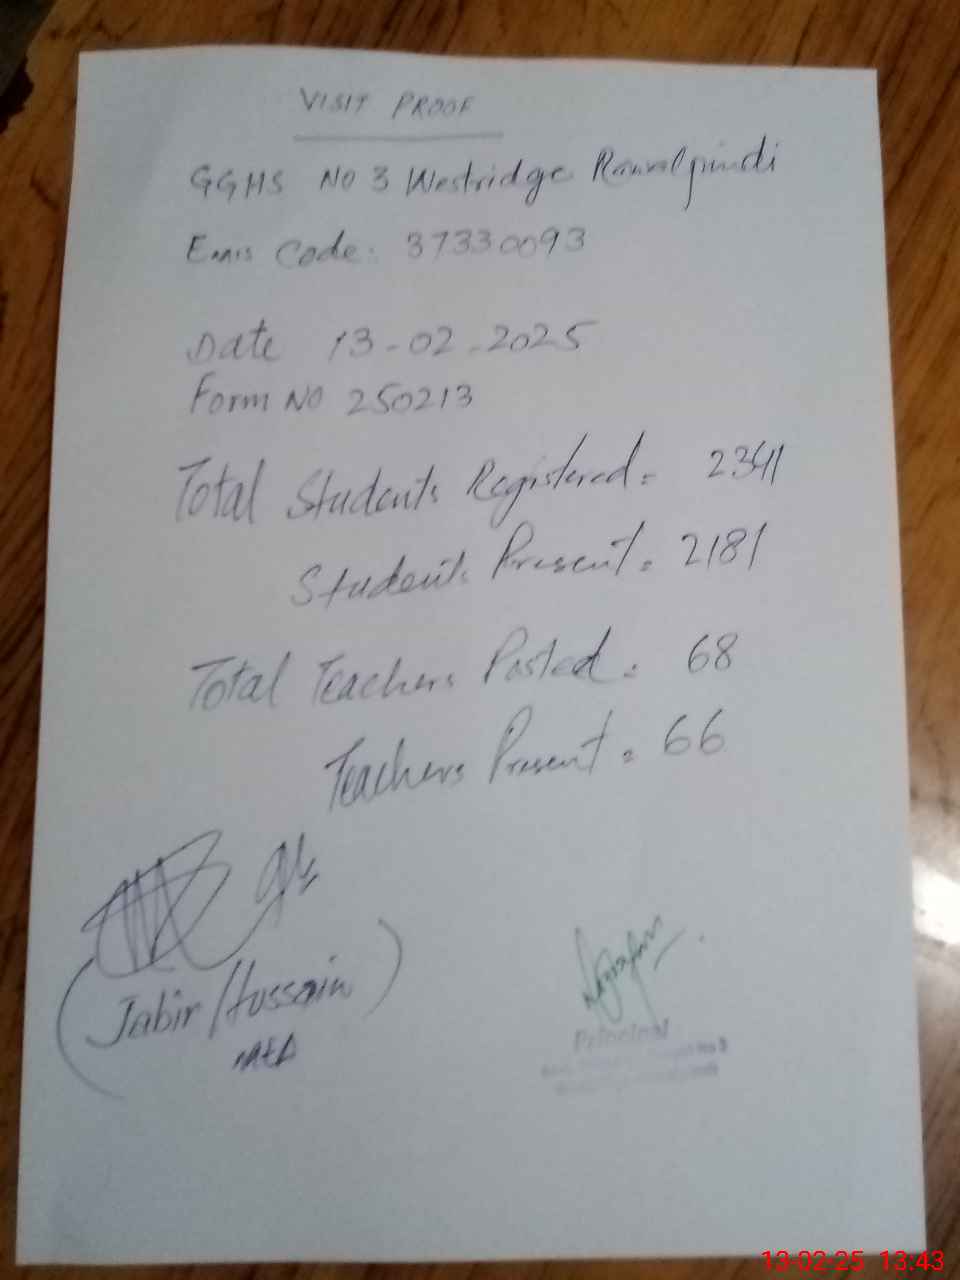 VISIT PROOF
GGHS NO 3 Westridge Rawalpindi
Emis Code: 37330093
Date 13-02-2025
Form NO 250213
Total Students Registered = 2341
Students Present = 2181
Total Teachers Posted = 68
Teachers Present = 66
(Jabir Hussain)
MEA
Principal
No 3
13-02-25 13:43